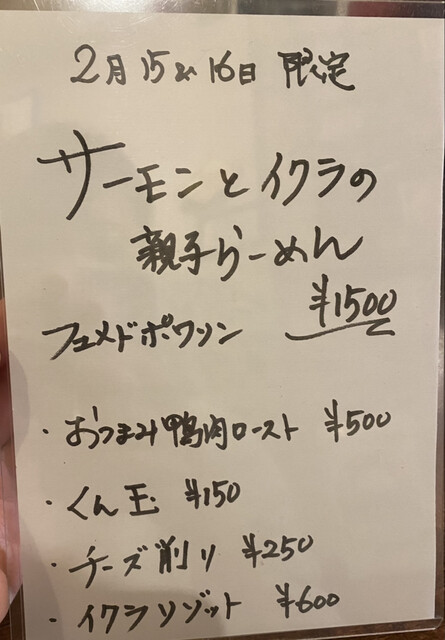 2月15&16日 限定
サーモンとイクラの
親子らーめん
¥1500
フュメドポワソン
・おつまみ鴨肉ロースト ¥500
・くん玉 ¥150
・チーズ削り ¥250
・イクラリゾット ¥600